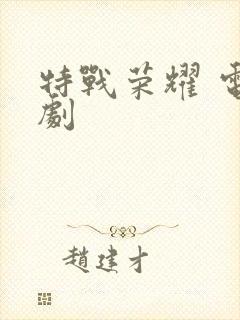 特戰荣耀 電
劇
趙建才